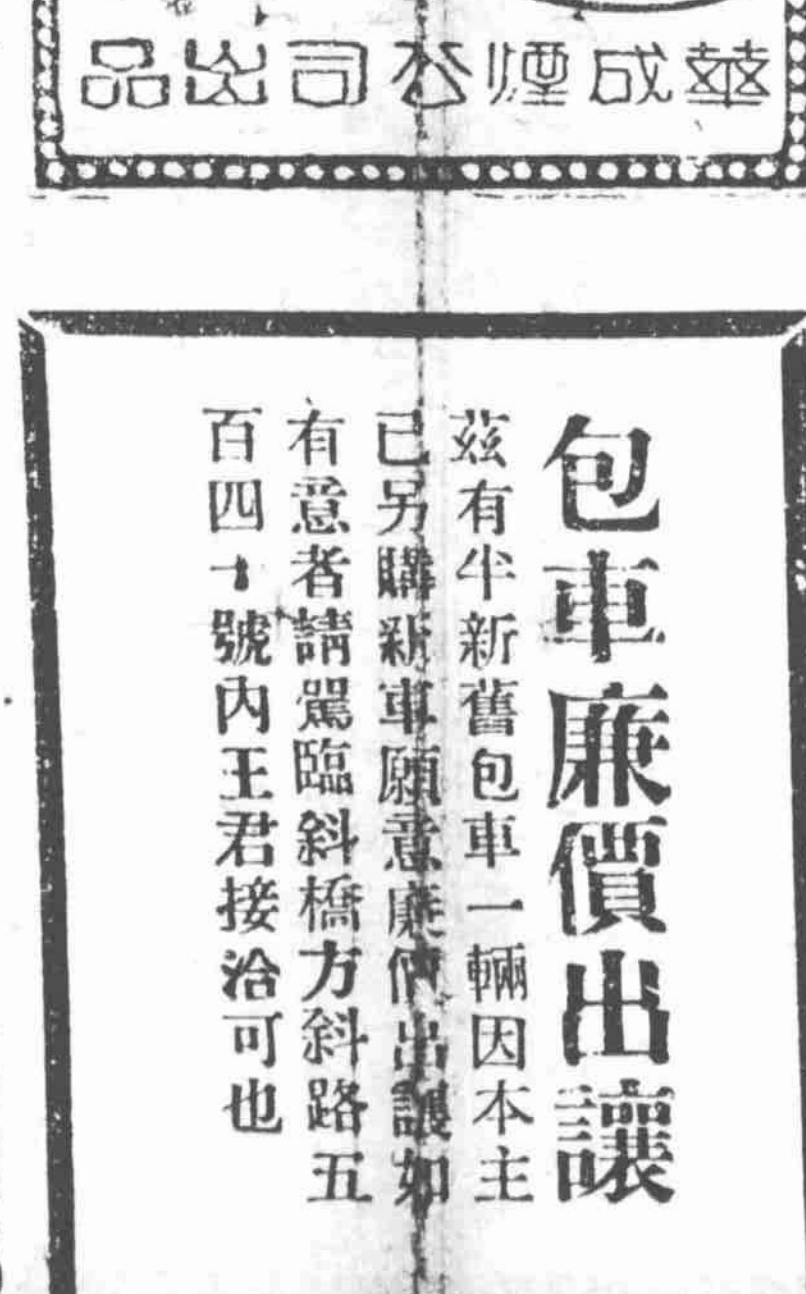 華成煙公司出品
包車廉價出讓
茲有半新舊包車一輛因本主
已另購新車願意廉價出讓如
有意者請駕臨斜橋方斜路五
百四十號內王君接洽可也